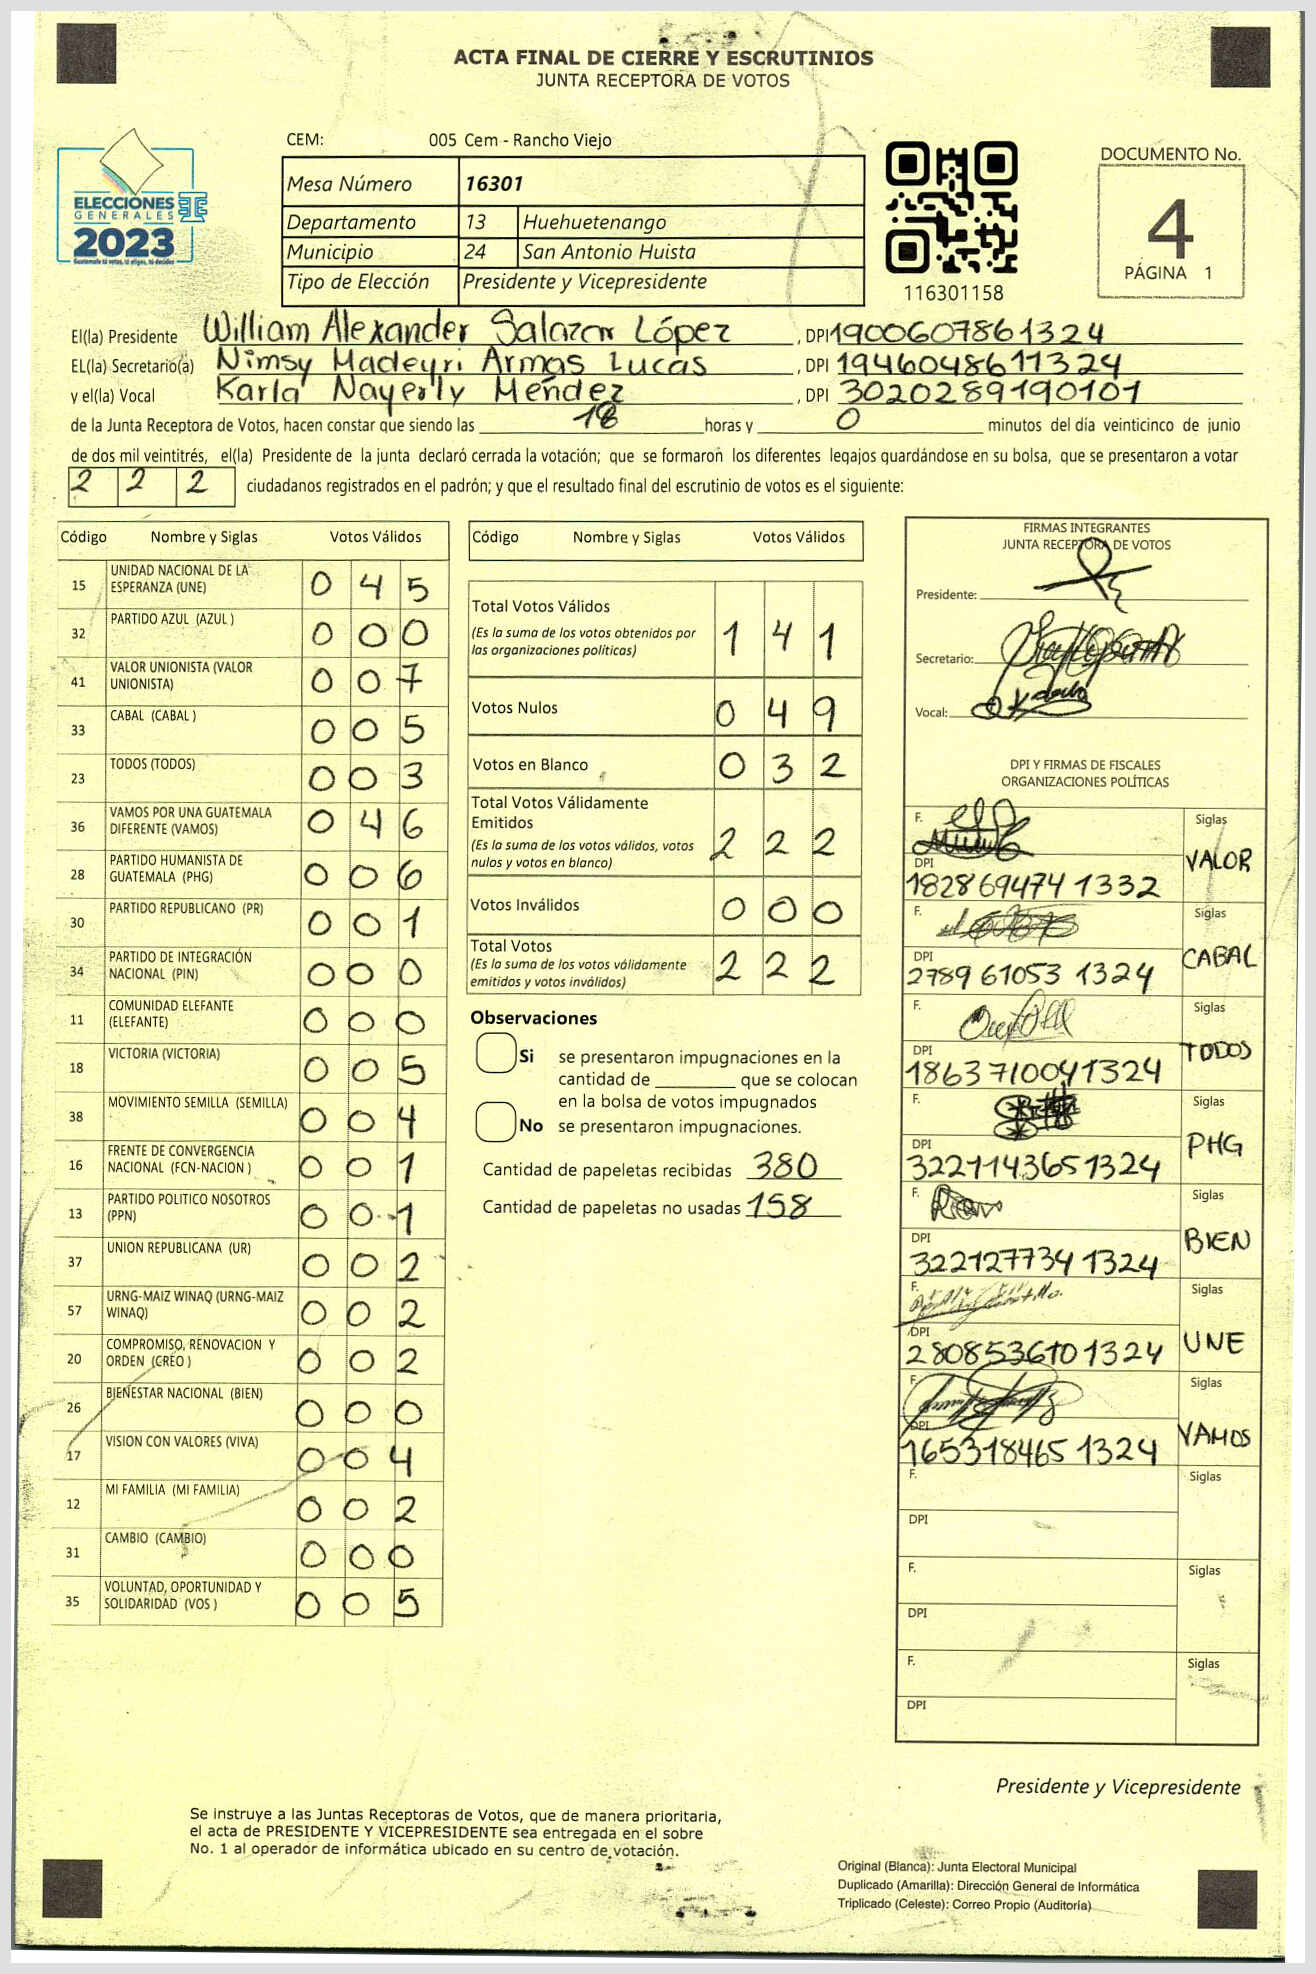 ACTA FINAL DE CIERRE Y ESCRUTINIOS
JUNTA RECEPTORA DE VOTOS
ELECCIONES
GENERALES
2023
Guatemala tú votas, tú eliges, tú decides
CEM: 005 Cem - Rancho Viejo
Mesa Número 16301
Departamento 13 Huehuetenango
Municipio 24 San Antonio Huista
Tipo de Elección Presidente y Vicepresidente
116301158
DOCUMENTO No.
4
PÁGINA 1
El(la) Presidente William Alexander Salazar López, DPI 1900607861324
EL(la) Secretario(a) Nimsy Madeyri Armas Lucas, DPI 1946048611324
y el(la) Vocal Karla Nayerly Méndez, DPI 3020289190101
de la Junta Receptora de Votos, hacen constar que siendo las 18 horas y 0 minutos del día veinticinco de junio
de dos mil veintitrés, el(la) Presidente de la junta declaró cerrada la votación; que se formaron los diferentes legajos guardándose en su bolsa, que se presentaron a votar
2 2 2 ciudadanos registrados en el padrón; y que el resultado final del escrutinio de votos es el siguiente:
Código Nombre y Siglas Votos Válidos
15 UNIDAD NACIONAL DE LA ESPERANZA (UNE) 0 4 5
32 PARTIDO AZUL (AZUL ) 0 0 0
41 VALOR UNIONISTA (VALOR UNIONISTA) 0 0 7
33 CABAL (CABAL ) 0 0 5
23 TODOS (TODOS) 0 0 3
36 VAMOS POR UNA GUATEMALA DIFERENTE (VAMOS) 0 4 6
28 PARTIDO HUMANISTA DE GUATEMALA (PHG) 0 0 6
30 PARTIDO REPUBLICANO (PR) 0 0 1
34 PARTIDO DE INTEGRACIÓN NACIONAL (PIN) 0 0 0
11 COMUNIDAD ELEFANTE (ELEFANTE) 0 0 0
18 VICTORIA (VICTORIA) 0 0 5
38 MOVIMIENTO SEMILLA (SEMILLA) 0 0 4
16 FRENTE DE CONVERGENCIA NACIONAL (FCN-NACION ) 0 0 1
13 PARTIDO POLITICO NOSOTROS (PPN) 0 0 1
37 UNION REPUBLICANA (UR) 0 0 2
57 URNG-MAIZ WINAQ (URNG-MAIZ WINAQ) 0 0 2
20 COMPROMISO, RENOVACION Y ORDEN (CREO ) 0 0 2
26 BIENESTAR NACIONAL (BIEN) 0 0 0
17 VISION CON VALORES (VIVA) 0 0 4
12 MI FAMILIA (MI FAMILIA) 0 0 2
31 CAMBIO (CAMBIO) 0 0 0
35 VOLUNTAD, OPORTUNIDAD Y SOLIDARIDAD (VOS ) 0 0 5
Código Nombre y Siglas Votos Válidos
Total Votos Válidos 1 4 1
(Es la suma de los votos obtenidos por
las organizaciones políticas)
Votos Nulos 0 4 9
Votos en Blanco 0 3 2
Total Votos Válidamente
Emitidos
(Es la suma de los votos válidos, votos
nulos y votos en blanco) 2 2 2
Votos Inválidos 0 0 0
Total Votos
(Es la suma de los votos válidamente
emitidos y votos inválidos) 2 2 2
Observaciones
Si se presentaron impugnaciones en la
cantidad de ________ que se colocan
en la bolsa de votos impugnados
No se presentaron impugnaciones.
Cantidad de papeletas recibidas 380
Cantidad de papeletas no usadas 158
FIRMAS INTEGRANTES
JUNTA RECEPTORA DE VOTOS
Presidente:
Secretario:
Vocal:
DPI Y FIRMAS DE FISCALES
ORGANIZACIONES POLÍTICAS
F. Siglas
DPI VALOR
182869474 1332
F. Siglas
DPI CABAL
2789 61053 1324
F. Siglas
DPI TODOS
1863710041324
F. Siglas
DPI PHG
3221143651324
F. Siglas
DPI BIEN
322127734 1324
F. Siglas
DPI UNE
2808536101324
F. Siglas
DPI VAMOS
165318465 1324
F. Siglas
DPI
F. Siglas
DPI
F. Siglas
DPI
Presidente y Vicepresidente
Se instruye a las Juntas Receptoras de Votos, que de manera prioritaria,
el acta de PRESIDENTE Y VICEPRESIDENTE sea entregada en el sobre
No. 1 al operador de informática ubicado en su centro de votación.
Original (Blanca): Junta Electoral Municipal
Duplicado (Amarilla): Dirección General de Informática
Triplicado (Celeste): Correo Propio (Auditoría)